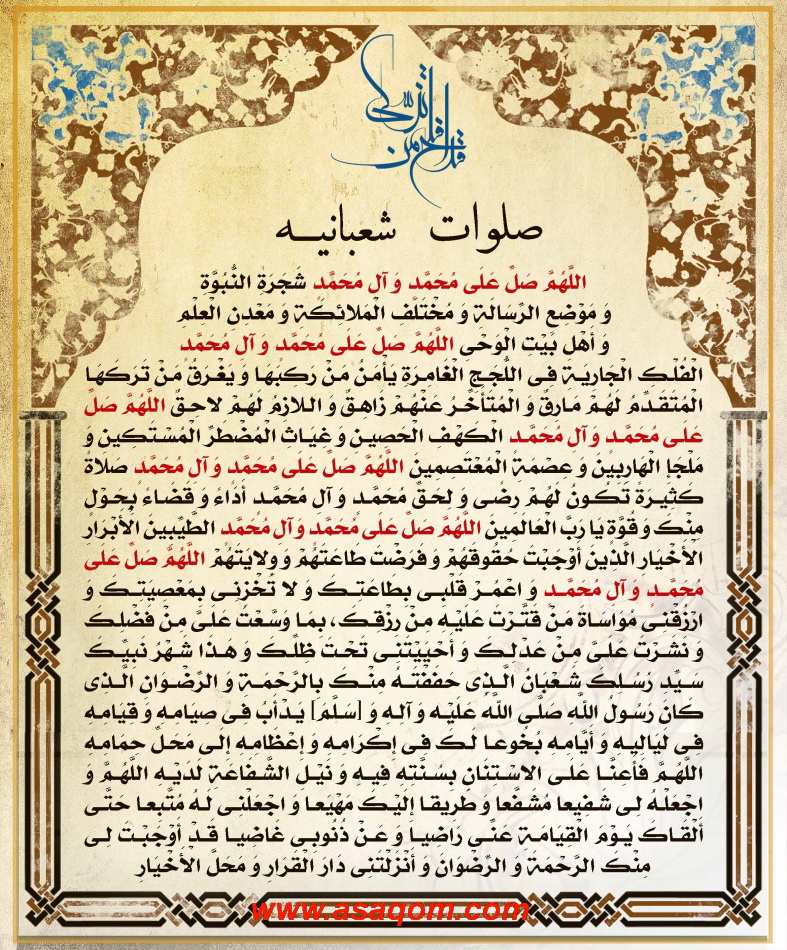 قد افلح من تزکی
صلوات شعبانیه
اللَّهُمَّ صَلِّ عَلَى مُحَمَّد وَ آلِ مُحَمَّد شَجَرَةِ النُّبُوَّةِ
وَ مَوْضِعِ الرِّسَالَةِ وَ مُخْتَلَفِ الْمَلائِكَةِ وَ مَعْدِنِ الْعِلْمِ
وَ أَهْلِ بَيْتِ الْوَحْيِ اللَّهُمَّ صَلِّ عَلَى مُحَمَّد وَ آلِ مُحَمَّد
الْفُلْكِ الْجَارِيَةِ فِي اللُّجَجِ الْغَامِرَةِ يَأْمَنُ مَنْ رَكِبَهَا وَ يَغْرَقُ مَنْ تَرَكَهَا
الْمُتَقَدِّمُ لَهُمْ مَارِقٌ وَ الْمُتَأَخِّرُ عَنْهُمْ زَاهِقٌ وَ اللازِمُ لَهُمْ لاحِقٌ اللَّهُمَّ صَلِّ
عَلَى مُحَمَّد وَ آلِ مُحَمَّد الْكَهْفِ الْحَصِينِ وَ غِيَاثِ الْمُضْطَرِّ الْمُسْتَكِينِ وَ
مَلْجَإِ الْهَارِبِينَ وَ عِصْمَةِ الْمُعْتَصِمِينَ اللَّهُمَّ صَلِّ عَلَى مُحَمَّد وَ آلِ مُحَمَّد صَلاةً
كَثِيرَةً تَكُونُ لَهُمْ رِضًى وَ لِحَقِّ مُحَمَّد وَ آلِ مُحَمَّد أَدَاءً وَ قَضَاءً بِحَوْلٍ
مِنْكَ وَ قُوَّةٍ يَا رَبَّ الْعَالَمِينَ اللَّهُمَّ صَلِّ عَلَى مُحَمَّد وَ آلِ مُحَمَّد الطَّيِّبِينَ الْأَبْرَارِ
الْأَخْيَارِ الَّذِينَ أَوْجَبْتَ حُقُوقَهُمْ وَ فَرَضْتَ طَاعَتَهُمْ وَ وِلايَتَهُمْ اللَّهُمَّ صَلِّ عَلَى
مُحَمَّد وَ آلِ مُحَمَّد وَ اعْمُرْ قَلْبِي بِطَاعَتِكَ وَ لا تُخْزِنِي بِمَعْصِيَتِكَ وَ
ارْزُقْنِي مُوَاسَاةَ مَنْ قَتَّرْتَ عَلَيْهِ مِنْ رِزْقِكَ، بِمَا وَسَّعْتَ عَلَيَّ مِنْ فَضْلِكَ
وَ نَشَرْتَ عَلَيَّ مِنْ عَدْلِكَ وَ أَحْيَيْتَنِي تَحْتَ ظِلِّكَ وَ هَذَا شَهْرُ نَبِيِّكَ
سَيِّدِ رُسُلِكَ شَعْبَانُ الَّذِي حَفَفْتَهُ مِنْكَ بِالرَّحْمَةِ وَ الرِّضْوَانِ الَّذِي
كَانَ رَسُولُ اللَّهِ صَلَّى اللَّهُ عَلَيْهِ وَ آلِهِ وَ [سَلَّمَ] يَدْأَبُ فِي صِيَامِهِ وَ قِيَامِهِ
فِي لَيَالِيهِ وَ أَيَّامِهِ بُخُوعا لَكَ فِي إِكْرَامِهِ وَ إِعْظَامِهِ إِلَى مَحَلِّ حِمَامِهِ
اللَّهُمَّ فَأَعِنَّا عَلَى الاسْتِنَانِ بِسُنَّتِهِ فِيهِ وَ نَيْلِ الشَّفَاعَةِ لَدَيْهِ اللَّهُمَّ وَ
اجْعَلْهُ لِي شَفِيعا مُشَفَّعا وَ طَرِيقا إِلَيْكَ مَهْيَعا وَ اجْعَلْنِي لَهُ مُتَّبِعا حَتَّى
أَلْقَاكَ يَوْمَ الْقِيَامَةِ عَنِّي رَاضِيا وَ عَنْ ذُنُوبِي غَاضِيا قَدْ أَوْجَبْتَ لِي
مِنْكَ الرَّحْمَةَ وَ الرِّضْوَانَ وَ أَنْزَلْتَنِي دَارَ الْقَرَارِ وَ مَحَلَّ الْأَخْيَارِ
www.asaqom.com